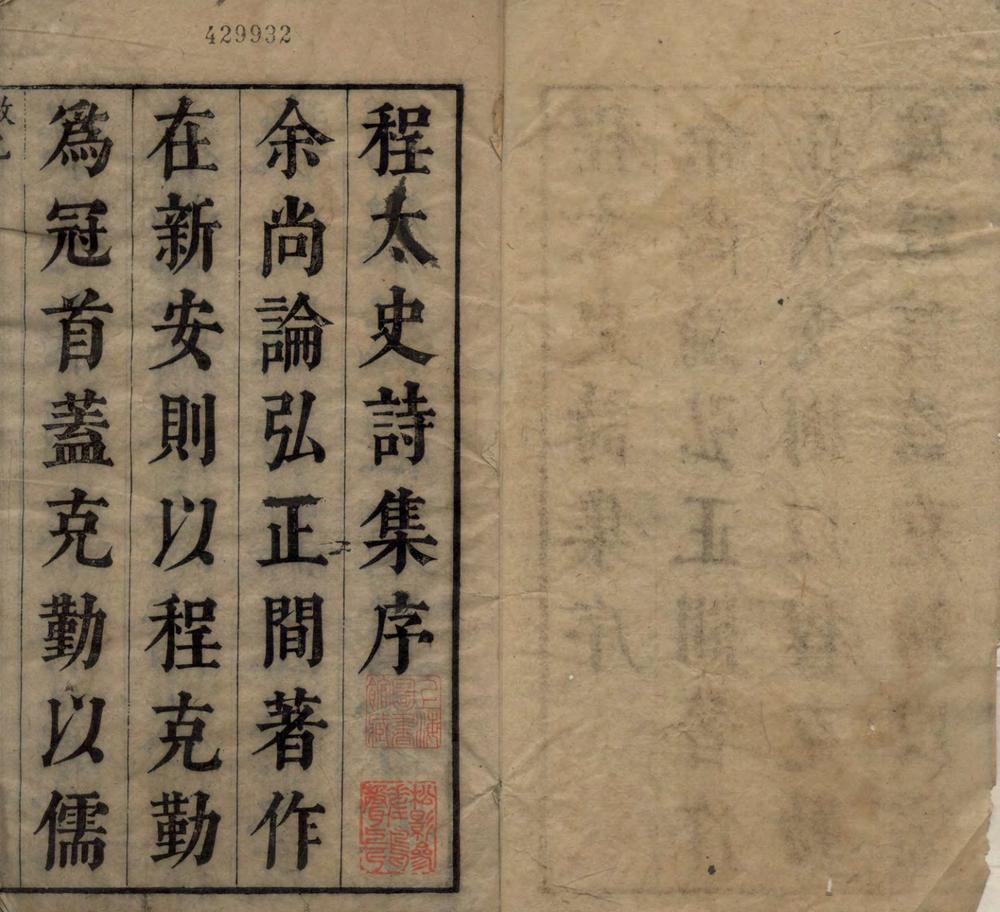 429932
程太史詩集序
余尚論弘正間著作
在新安則以程克勤
為冠首蓋克勤以儒
上海圖書館藏